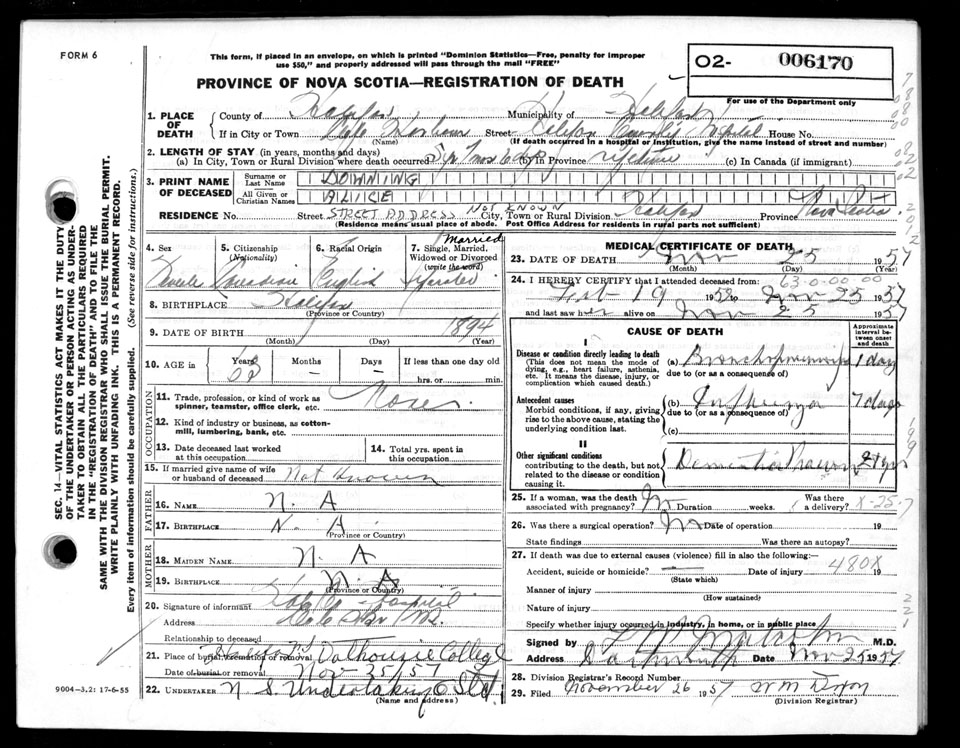 FORM 6
This form, if placed in an envelope, on which is printed "Dominion Statistics—Free, penalty for improper
use $50," and properly addressed will pass through the mail "FREE"
PROVINCE OF NOVA SCOTIA—REGISTRATION OF DEATH
O2- 006170
For use of the Department only
SEC. 14—VITAL STATISTICS ACT MAKES IT THE DUTY
OF THE UNDERTAKER OR PERSON ACTING AS UNDER-
TAKER TO OBTAIN ALL THE PARTICULARS REQUIRED
IN THE "REGISTRATION OF DEATH" AND TO FILE THE
SAME WITH THE DIVISION REGISTRAR WHO SHALL ISSUE THE BURIAL PERMIT.
WRITE PLAINLY WITH UNFADING INK. THIS IS A PERMANENT RECORD.
Every item of information should be carefully supplied. (See reverse side for instructions.)
1. PLACE OF DEATH
County of Halifax Municipality of Halifax
If in City or Town Cole Harbour Street Halifax County Hospital House No.
(Name) (If death occurred in a hospital or institution, give the name instead of street and number)
2. LENGTH OF STAY (in years, months and days)
(a) In City, Town or Rural Division where death occurred 5 yr 9 mos 6 dys (b) In Province lifetime (c) In Canada (if immigrant)
3. PRINT NAME OF DECEASED
Surname or Last Name DOWNING
All Given or Christian Names ALICE
RESIDENCE No. Street STREET ADDRESS NOT KNOWN City, Town or Rural Division Halifax Province Nova Scotia
(Residence means usual place of abode. Post Office Address for residents in rural parts not sufficient)
4. Sex Female
5. Citizenship (Nationality) Canadian
6. Racial Origin English
7. Single, Married, Widowed or Divorced (write the word) Married Separated
8. BIRTHPLACE Halifax
(Province or Country)
9. DATE OF BIRTH 1894
(Month) (Day) (Year)
10. AGE in Years Months — Days — If less than one day old
hrs. or min.
OCCUPATION
11. Trade, profession, or kind of work as
spinner, teamster, office clerk, etc. None
12. Kind of industry or business, as cotton-
mill, lumbering, bank, etc.
13. Date deceased last worked
at this occupation
14. Total yrs. spent in
this occupation
15. If married give name of wife
or husband of deceased Not Known
FATHER
16. NAME N. A
17. BIRTHPLACE N. A
(Province or Country)
MOTHER
18. MAIDEN NAME N. A
19. BIRTHPLACE N. A
(Province or Country)
20. Signature of informant Hospital
Address Cole Hbr
Relationship to deceased
21. Place of burial, cremation or removal Dalhousie College
Date of burial or removal Nov 25/57
22. UNDERTAKER N S Undertaking Co Ltd
(Name and Address)
9004-3.2: 17-6-55
MEDICAL CERTIFICATE OF DEATH
23. DATE OF DEATH Nov 25 1957
(Month) (Day) (Year)
24. I HEREBY CERTIFY that I attended deceased from: 63-0-00-00
Feb 19 1952 to Nov 25 1957
and last saw her alive on Nov 25 1957
CAUSE OF DEATH
Approximate interval between onset and death
I
Disease or condition directly leading to death
(This does not mean the mode of
dying, e.g., heart failure, asthenia,
etc. It means the disease, injury, or
complication which caused death.)
(a) Bronchopneumonia 1 day
due to (or as a consequence of)
Antecedent causes
Morbid conditions, if any, giving
rise to the above cause, stating the
underlying condition last.
(b) Influenza 7 days
due to (or as a consequence of)
(c)
II
Other significant conditions
contributing to the death, but not
related to the disease or condition
causing it.
Dementia Praecox
25. If a woman, was the death
associated with pregnancy? No Duration weeks. Was there
a delivery? X-25-7
26. Was there a surgical operation? No Date of operation 19
State findings Was there an autopsy?
27. If death was due to external causes (violence) fill in also the following:—
Accident, suicide or homicide? — Date of injury 480X 19
(State which)
Manner of injury
(How sustained)
Nature of injury
Specify whether injury occurred in industry, in home, or in public place
Signed by M.D.
Address Dartmouth Date Nov 25 1957
28. Division Registrar's Record Number
29. Filed November 26 1957 W M Dixon
(Division Registrar)